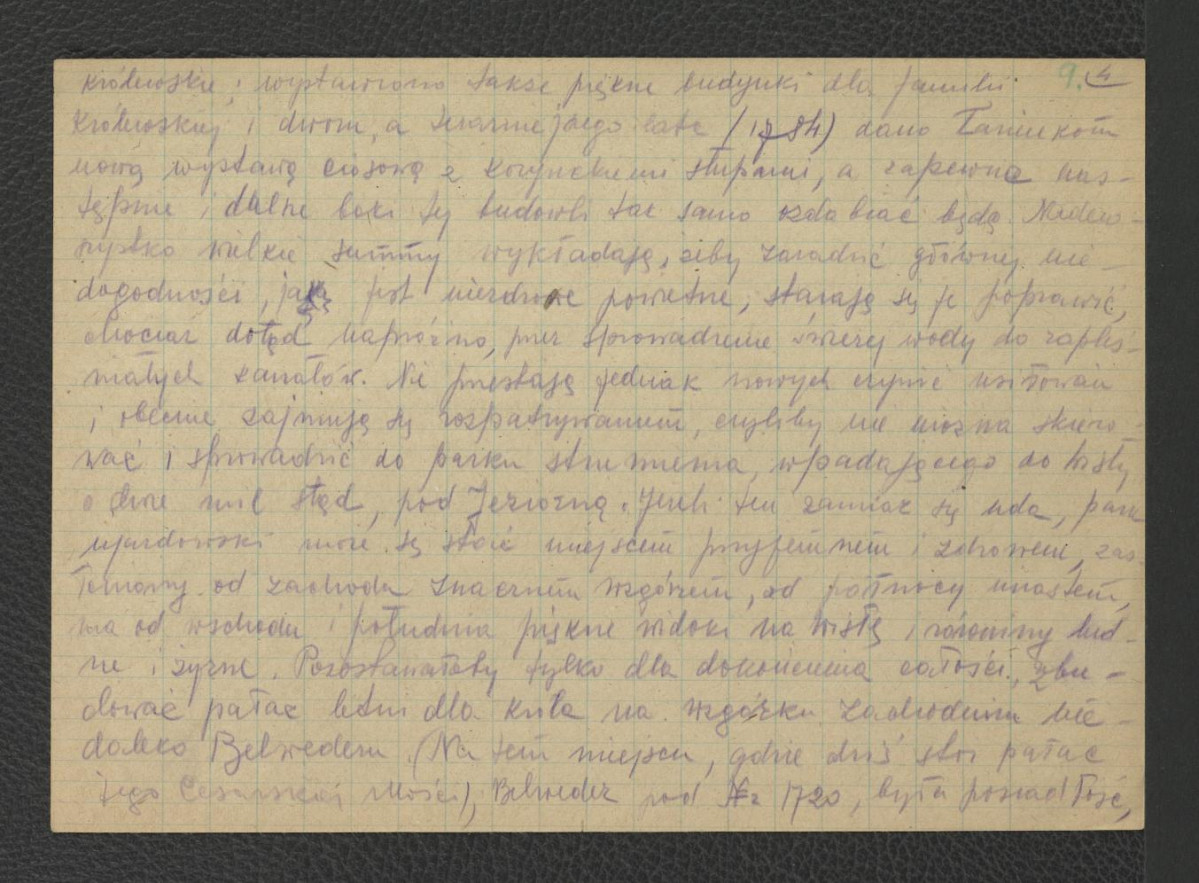 królewskie, i wystawiono także piękne budynki dla familii 9.
królewskiej i dworu, a teraźniejszego lata (1784) dano Łazienkom
nową wystawę ciosową z korynckiemi słupami, a zapewne nas-
tępnie i dalsze boki tej budowli tak samo ozdabiać będą. Nadew-
szystko wielkie summy wykładają, żeby zaradzić głównej nie-
dogodności, jaką jest niezdrowe powietrze, starają się je poprawić,
chociaż dotąd napróżno, przez sprowadzenie świeżej wody do zapleś-
niałych kanałów. Nie przestają jednak nowych czynić usiłowań
i obecnie zajmują się rozpatrywaniem, czyliby nie można skiero-
wać i sprowadzić do parku strumienia, wpadającego do Wisły
o dwie mile stąd, pod Jeziorną. Jeżeli ten zamiar się uda, park
ujazdowski może się stać miejscem przyjemnem i zdrowem, zas-
łoniony od zachodu znacznem wzgórzem, od północy miastem,
ma od wschodu i południa piękne widoki na Wisłę i równiny lud-
ne i żyzne. Pozostawałoby tylko dla dokończenia całości, zbu-
dować pałac letni dla króla na wzgórku zachodnim nie-
daleko Belwederu. (Na tem miejscu, gdzie dziś stoi pałac
Jego Cesarskiej Mości), Belweder pod Nr 1720, była posiadłość,